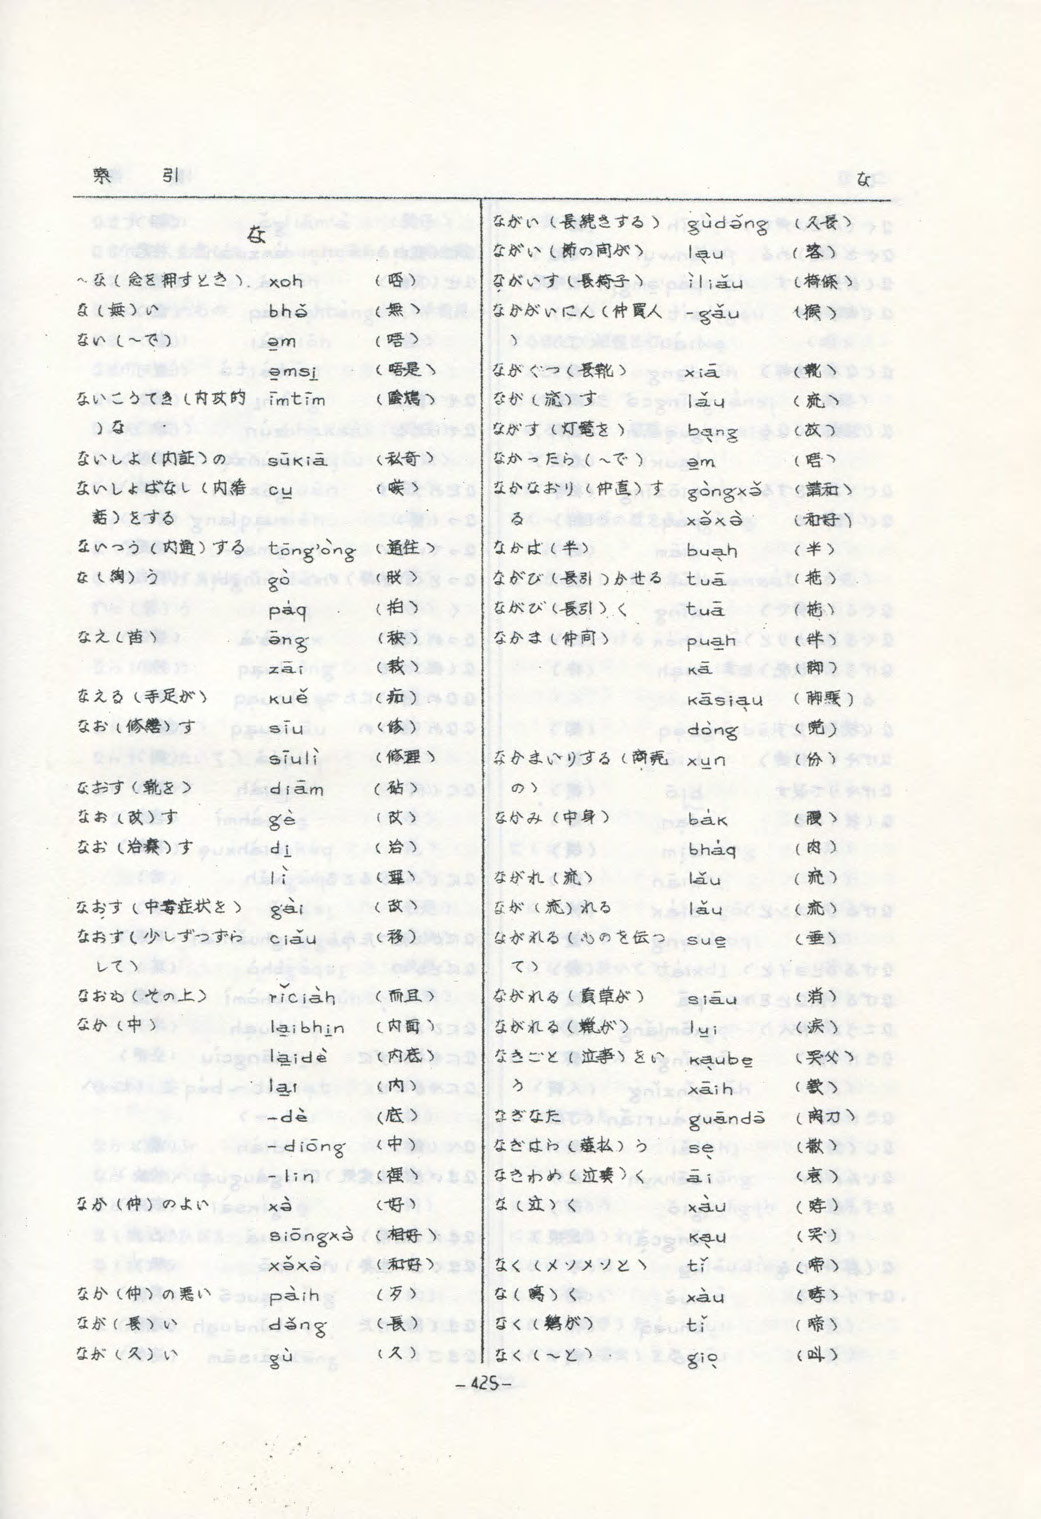 索 引
な
な
～な（念を押すとき） xoh （唔）
な（無）い bhǝ̌ （無）
ない（～で） ǝ̱m （唔）
ǝ̱msi̱ （唔是）
ないこうてき（内攻的 īmtīm （陰鴆）
）な
ないしよ（内証）の sūkiā （私奇）
ないしょばなし（内緒 cu̱ （呹）
話）をする
ないつう（内通）する tōng'òng （通往）
な（綯）う gò
páq （拍）
なえ（苗） ǝ̄ng （秧）
zāi （栽）
なえる（手足が） kuě （痂）
なお（修繕）す sīu （修）
sīulì （修理）
なおす（靴を） diām （砧）
なお（改）す gè （改）
なお（治療）す di̱ （治）
lì （理）
なおす（中毒症状を） gài （改）
なおす（少しずつずら ciǎu （移）
して）
なおぬ（その上） rǐciàh （而且）
なか（中） la̱ibhi̱n （内面）
la̱idè （内底）
la̱i （内）
-dè （底）
-diōng （中）
-lin （裡）
なか（仲）のよい xǝ̀ （好）
siōngxǝ̀ （相好）
xǝ̌xǝ̀ （和好）
なか（仲）の悪い pàih （歹）
なが（長）い dǝ̌ng （長）
なが（久）い gù （久）
ながい（長続きする） gùdǝ̌ng （久長）
ながい（節の間が） la̱u （落）
ながいす（長椅子） ìliǎu （椅條）
なかがいにん（仲買人 -gǎu （猴）
）
ながぐつ（長靴） xiā （靴）
なが（流）す lǎu （流）
ながす（灯篭を） ba̱ng （放）
なかったら（～で） ǝ̱m （唔）
なかなおり（仲直）す gòngxǝ̌ （講和）
る xǝ̌xǝ̀ （和好）
なかば（半） bua̱h （半）
ながび（長引）かせる tuā （拖）
ながび（長引）く tuā （拖）
なかま（仲間） pua̱h （伴）
kā （脚）
kāsia̱u （脚賬）
dòng （党）
なかまいりする（商売 xu̱n （份）
の）
なかみ（中身） bák
bháq （肉）
ながれ（流） lǎu （流）
なが（流）れる lǎu （流）
ながれる（ものを伝っ sue̱ （垂）
て）
ながれる（真草が） siāu （消）
ながれる（蝋が） lu̱i （涙）
なきごと（泣事）をい ka̱ube̱ （哭父）
う xāih
なぎなた guāndǝ̄
なぎはら（薙払）う se̱ （撒）
なきわめ（泣喚）く āi （哀）
な（泣）く xàu （哮）
ka̱u （哭）
なく（メソメソと） tǐ （啼）
な（鳴）く xàu （哮）
なく（鶏が） tǐ （啼）
なく（～と） gio̱ （叫）
-425-